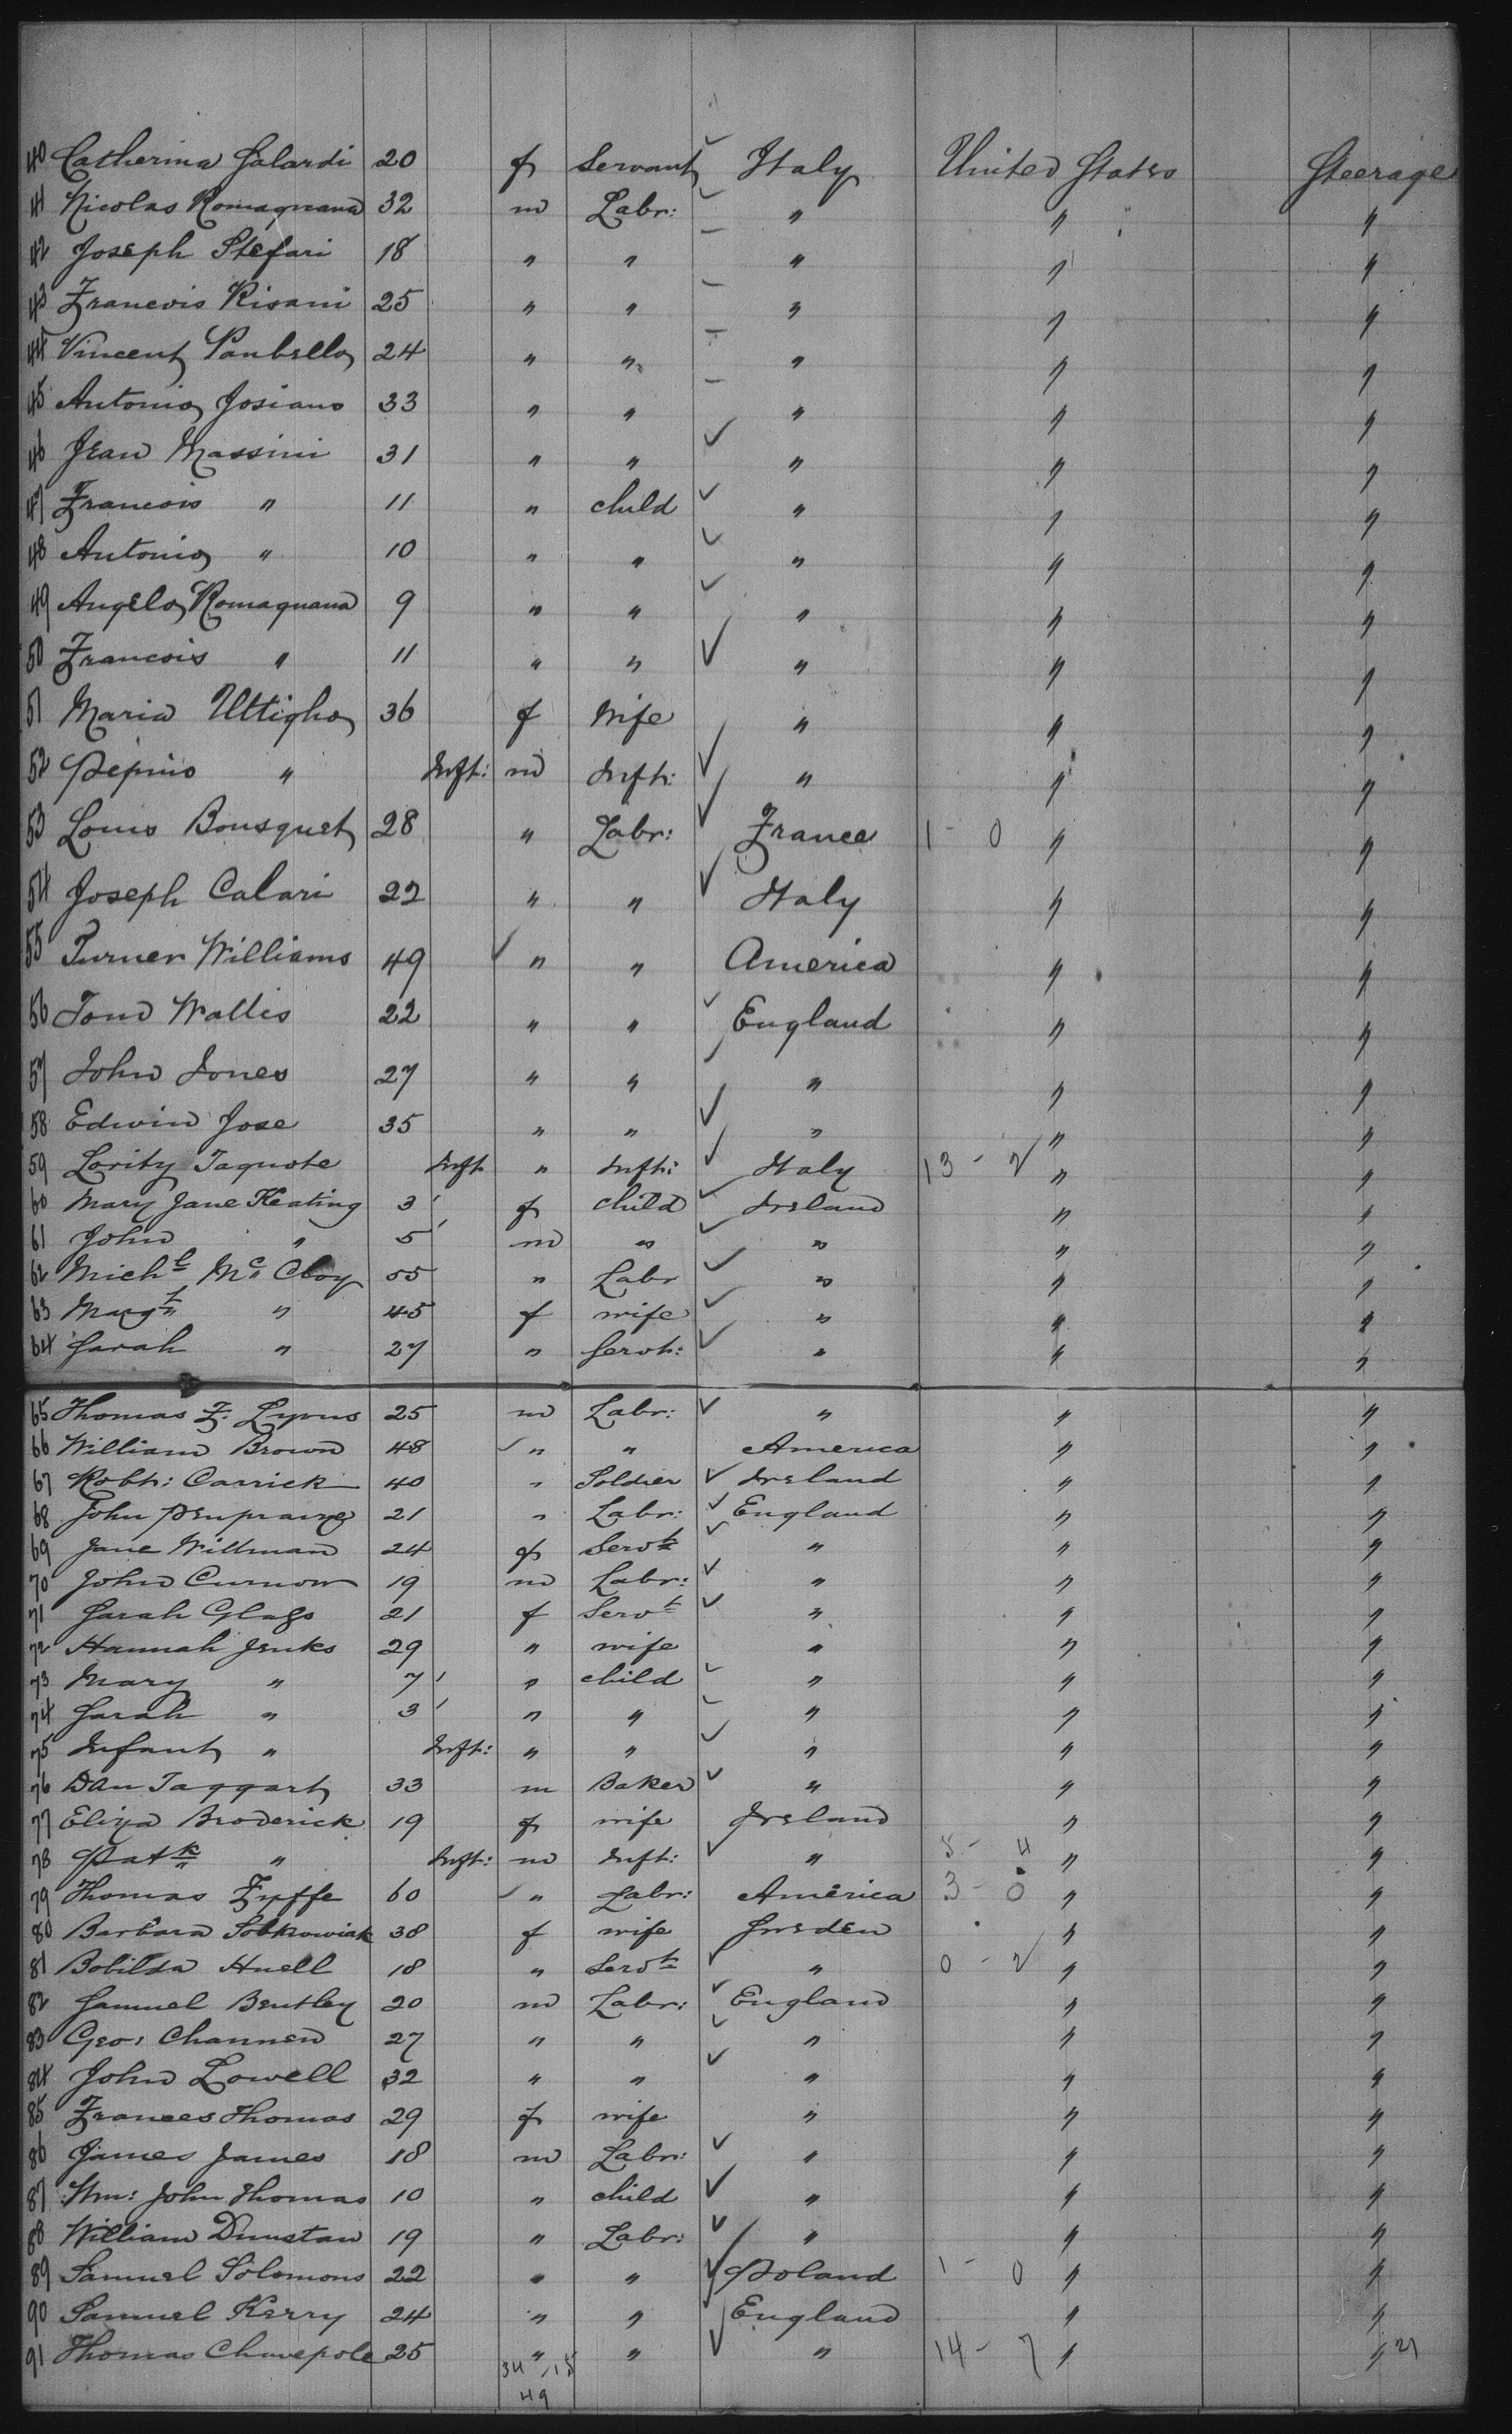 40 Catherina Galardi 20 f Servant Italy United States Steerage
41 Nicolas Romagnana 32 m Labr: " " "
42 Joseph Stefari 18 " " " " "
43 Francois Risani 25 " " " " "
44 Vincent Panbello 24 " " " " "
45 Antonio Josiano 33 " " " " "
46 Jean Massini 31 " " " " "
47 Francois " 11 " child " " "
48 Antonio " 10 " " " " "
49 Angelo Romagnana 9 " " " " "
50 Francois " 11 " " " " "
51 Maria Uttigho 36 f Wife " " "
52 Pepino " Inft: m Inft: " " "
53 Louis Bousquet 28 " Labr: France 1 - 0 " "
54 Joseph Calari 22 " " Italy " "
55 Turner Williams 49 " " America " "
56 Tom Wallis 22 " " England " "
57 John Jones 27 " " " " "
58 Edwin Jose 35 " " " " "
59 Lority Taquote Inft " Inft: Italy 13 - 2 " "
60 Mary Jane Keating 3 f child Ireland " "
61 John " 5 m " " " "
62 Michl McCloy 55 " Labr " " "
63 Margt " 45 f wife " " "
64 Sarah " 27 " Servt: " " "
65 Thomas F. Lyons 25 m Labr: " " "
66 William Brown 48 " " America " "
67 Robt: Carrick 40 " Soldier Ireland " "
68 John Penpraze 21 " Labr: England " "
69 Jane Willman 24 f Servt " " "
70 John Curnow 19 m Labr: " " "
71 Sarah Glass 21 f Servt " " "
72 Hannah Jenks 29 " wife " " "
73 Mary " 7 " child " " "
74 Sarah " 3 " " " " "
75 Infant " Inft: " " " " "
76 Dan Taggart 33 m Baker " " "
77 Eliza Broderick 19 f wife Ireland " "
78 Patk " Inft: m Inft: " 5 - 4 " "
79 Thomas Fyffe 60 " Labr: America 3 - 0 " "
80 Barbara Sobkowiak 38 f wife Sweden " "
81 Bolilda Huell 18 " Servt " 0 - 2 " "
82 Samuel Bentley 20 m Labr: England " "
83 Geo: Channen 27 " " " " "
84 John Lowell 32 " " " " "
85 Frances Thomas 29 f wife " " "
86 James James 18 m Labr: " " "
87 Wm: John Thomas 10 " child " " "
88 William Dunstan 19 " Labr: " " "
89 Samuel Solomons 22 " " Poland 1 - 0 " "
90 Samuel Kerry 24 " " England " "
91 Thomas Chirepole 25 " " " 14 - 7 " " 21
34 - 15
49